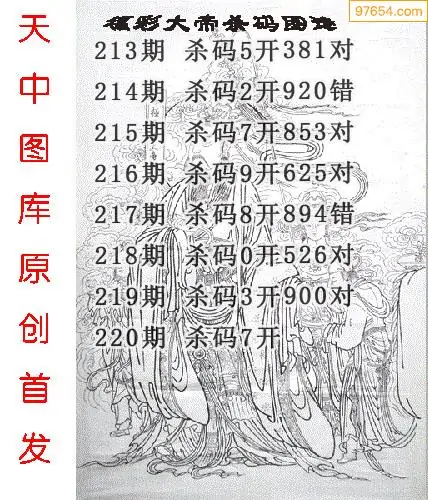 97654.com
福彩大帝杀码图迷
213期 杀码5开381对
214期 杀码2开920错
215期 杀码7开853对
216期 杀码9开625对
217期 杀码8开894错
218期 杀码0开526对
219期 杀码3开900对
220期 杀码7开
天中图库原创首发